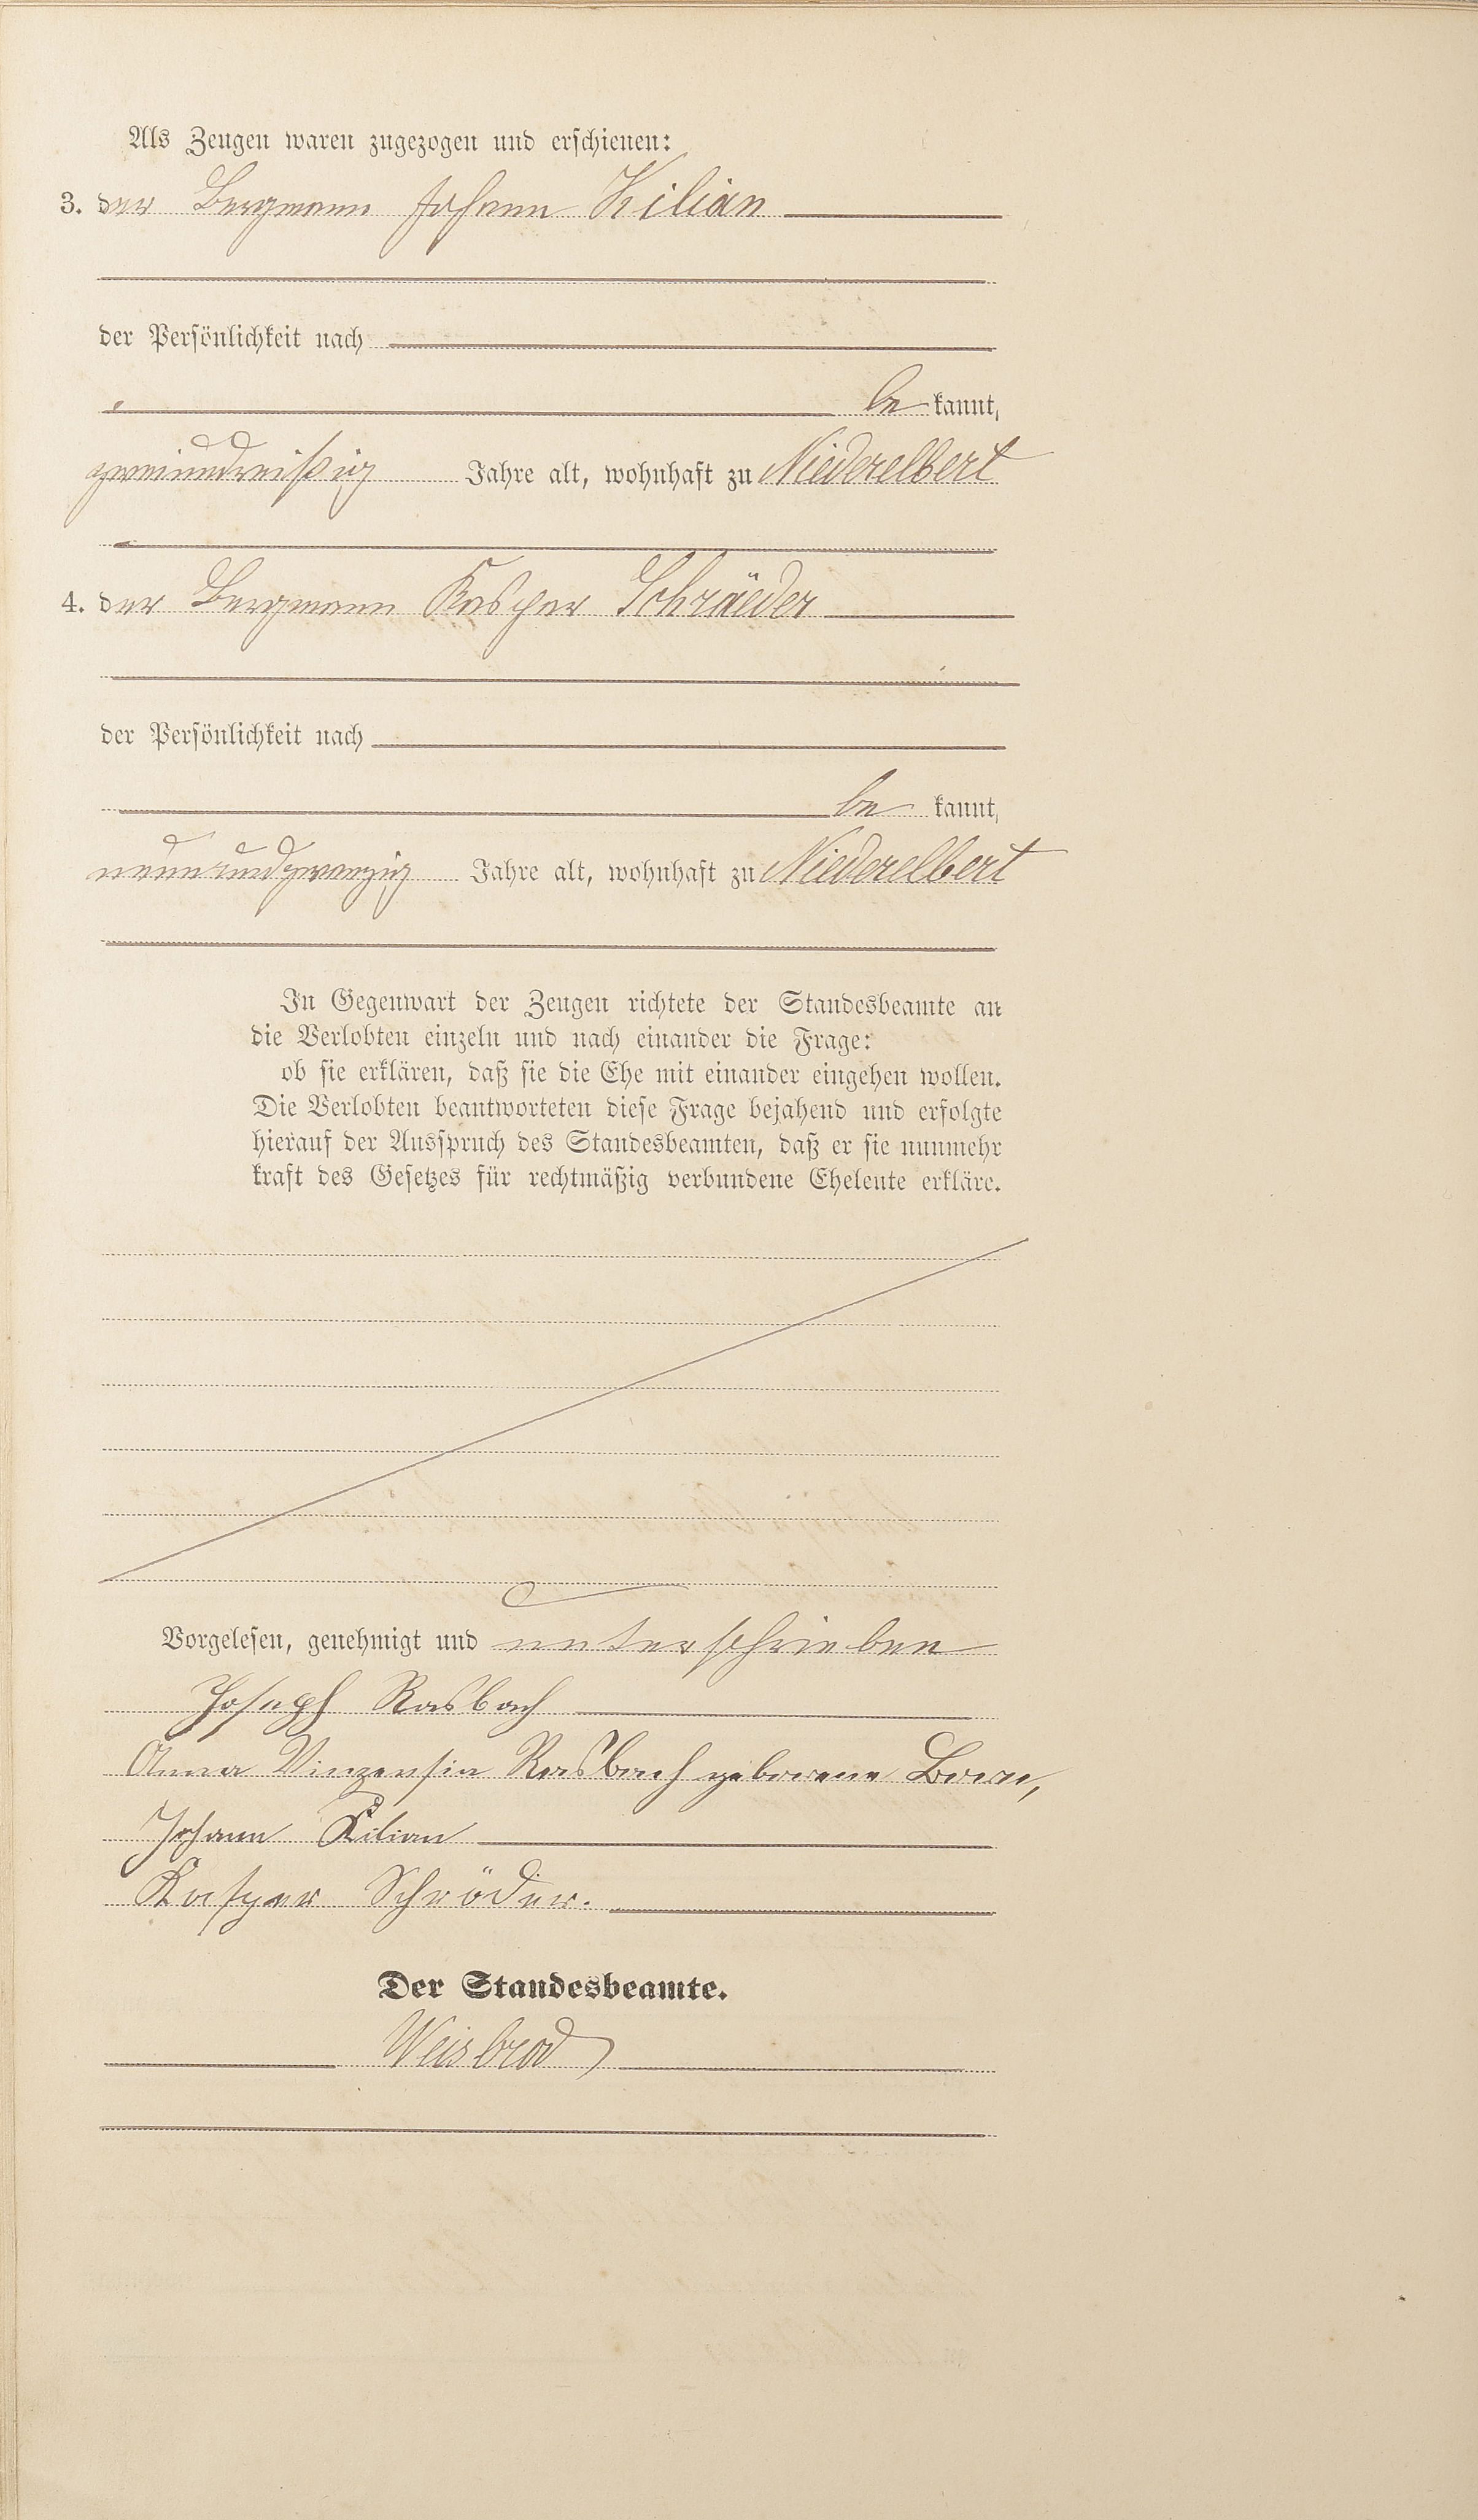 Als Zeugen waren zugezogen und erschienen:
3. der Bergmann Johann Kilian
der Persönlichkeit nach
be kannt,
zweiunddreißig Jahre alt, wohnhaft zu Niederelbert
4. der Bergmann Kasper Schräeder
der Persönlichkeit nach
be kannt,
neunundzwanzig Jahre alt, wohnhaft zu Niederelbert
In Gegenwart der Zeugen richtete der Standesbeamte an
die Verlobten einzeln und nach einander die Frage:
ob sie erklären, daß sie die Ehe mit einander eingehen wollen.
Die Verlobten beantworteten diese Frage bejahend und erfolgte
hierauf der Ausspruch des Standesbeamten, daß er sie nunmehr
kraft des Gesetzes für rechtmäßig verbundene Eheleute erkläre.
Vorgelesen, genehmigt und unterschrieben
Joseph Rasbach
Anna Vinzensia Rasbach geborene
Johann Kilian
Kasper Schröder.
Der Standesbeamte.
Weisbrod